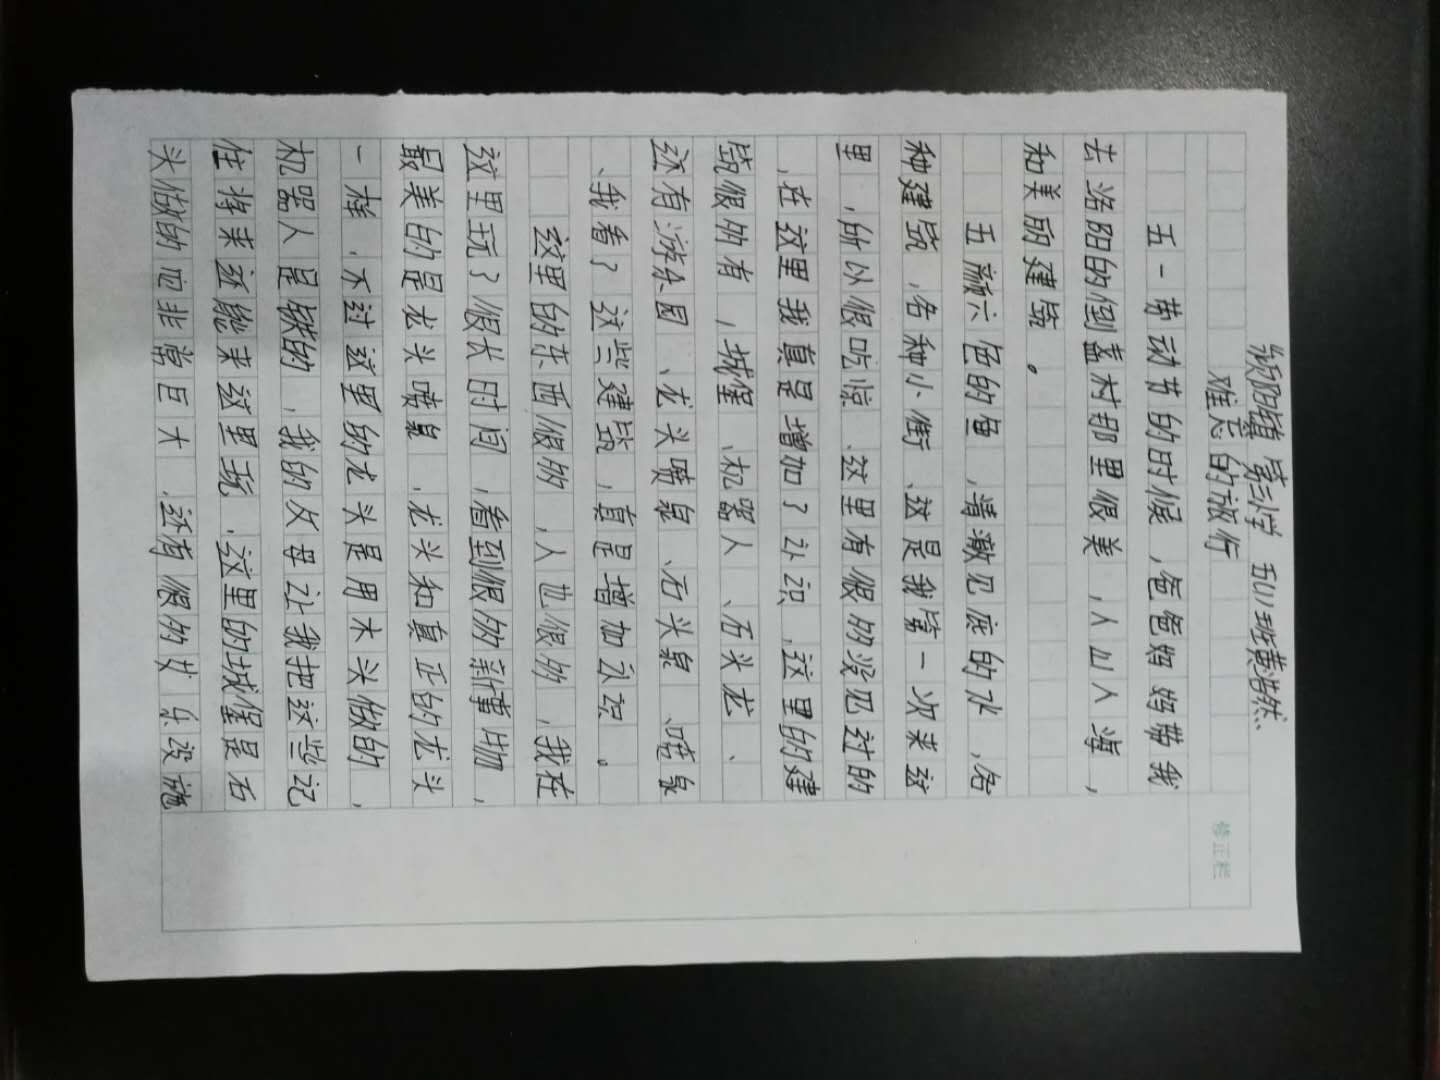 颍阳镇 第三小学 五(1)班黄浩然
难忘的旅行
五一劳动节的时候，爸爸妈妈带我
去洛阳的倒盏村那里很美，人山人海，
和美丽建筑。
五颜六色的鱼，清澈见底的水，各
种建筑，各种小街、这是我第一次来这
里，所以很吃惊、这里有很多没见过的
，在这里我真是增加了认识，这里的建
筑很多有，城堡、机器人、石头龙、
还有游乐园、龙头喷泉、石头泉、喷泉
、我看了这些建筑，真是增加认识。
这里的东西很多，人也很多，我在
这里玩了很长时间，看到很多新事物，
最美的是龙头喷泉，龙头和真正的龙头
一样，不过这里的龙头是用木头做的，
机器人是铁的，我的父母让我把这些记
住将来还能来这里玩，这里的城堡是石
头做的而非常巨大，还有很多娱乐设施
修正栏